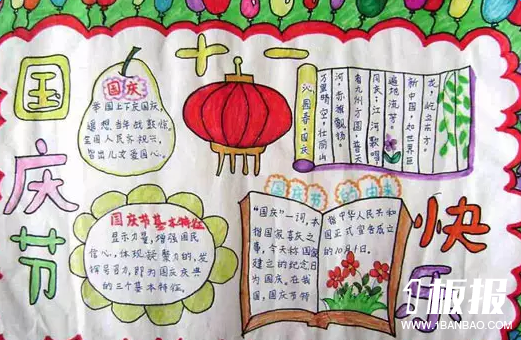 国庆节
十一
快乐
国庆
举国上下庆国庆,
遥想当年战鼓惊。
全国人民齐祝贺,
皆出儿女爱国心。
沁园春·国庆
万里晴空,壮丽山
河,赤旗飘扬。
看九州方圆,普天
同庆;江河歌唱
遍地流芳。
新中国,如世巨
龙,屹立东方。
国庆节基本特征
显示力量,增强国民
信心,体现凝聚力,
发挥号召力,即为国庆庆典
的三个基本特征。
国庆节的由来
“国庆”一词,本
指国家喜庆之
事,今天称国家
建立的纪念日
为国庆。在我
国,国庆节特
指中华人民共和
国正式宣告成立
的10月1日。
板报
WWW.1BANBAO.COM